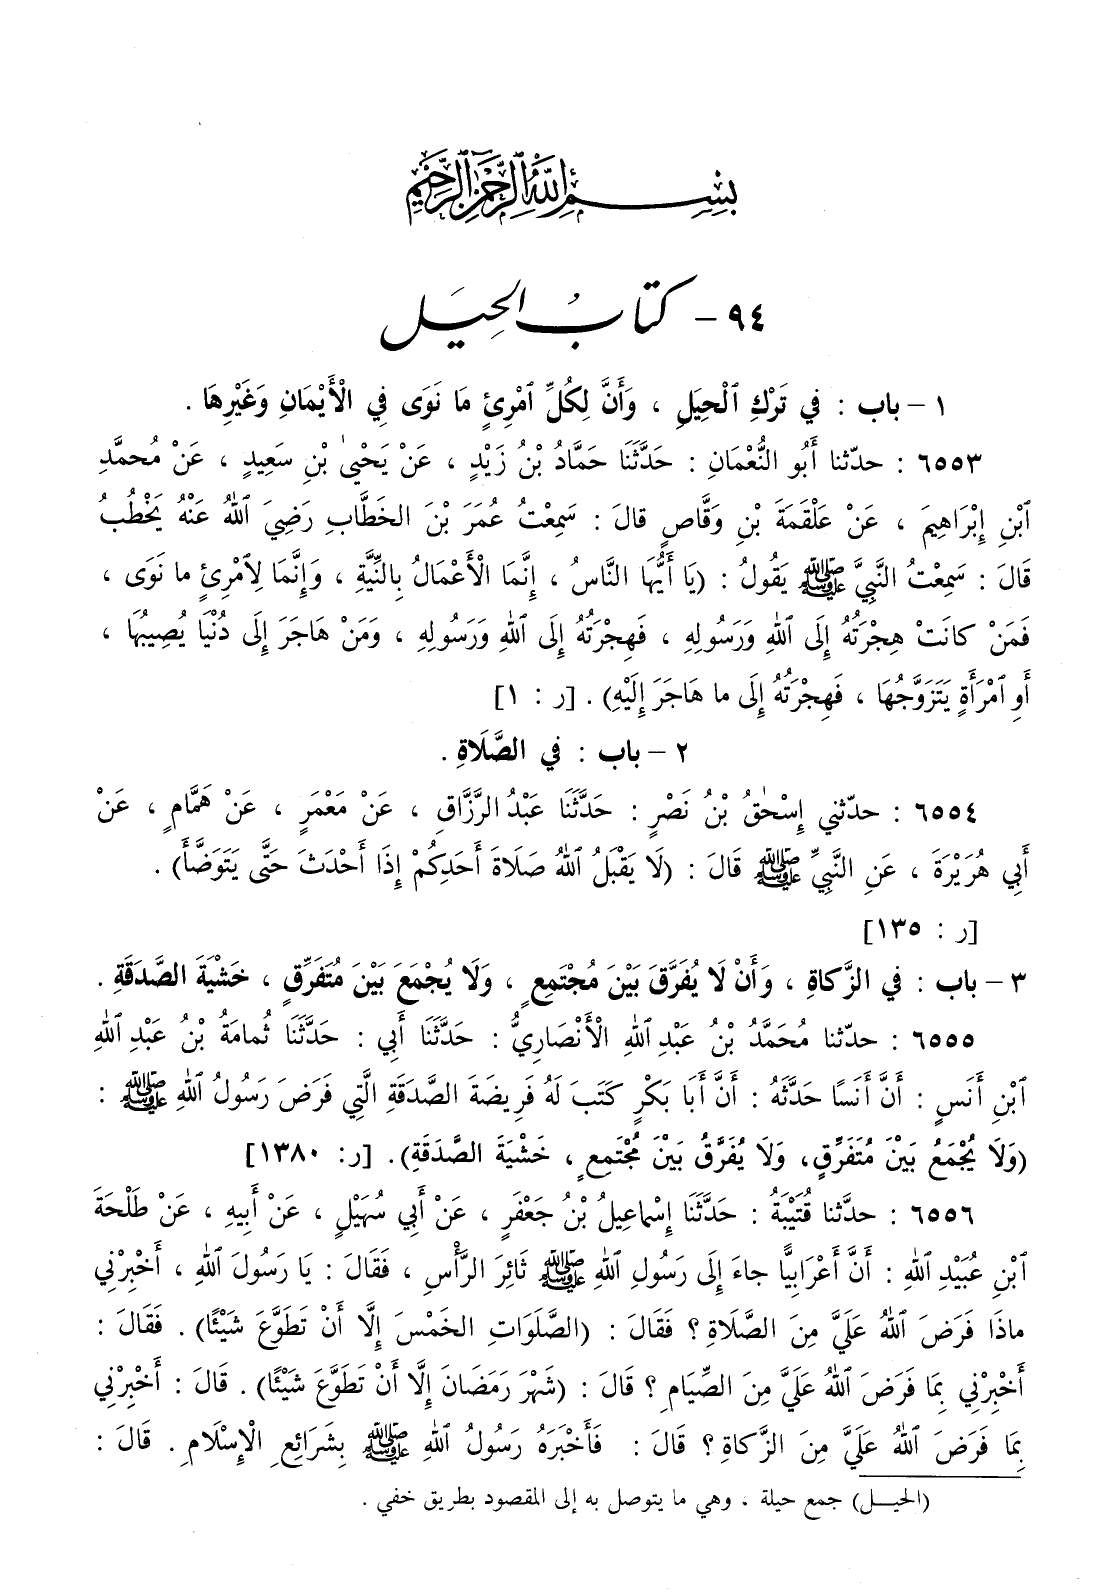 بِسْمِ ٱللّٰهِ ٱلرَّحْمٰنِ ٱلرَّحِيمِ
٩٤ – كتابُ الحِيَل
١ – باب : في تَرْكِ ٱلْحِيَلِ ، وَأَنَّ لِكُلِّ ٱمْرِئٍ ما نَوَى فِي الْأَيْمَانِ وَغَيْرِهَا .
٦٥٥٣ : حدّثنا أَبُو النُّعْمَانِ : حَدَّثَنَا حَمَّادُ بْنُ زَيْدٍ ، عَنْ يَحْيىٰ بْنِ سَعِيدٍ ، عَنْ مُحمَّدِ
ٱبْنِ إِبْرَاهِيمَ ، عَنْ عَلْقَمَةَ بْنِ وَقَّاصٍ قالَ : سَمِعْتُ عُمَرَ بْنَ الخَطَّابِ رَضِيَ ٱللهُ عَنْهُ يَخْطُبُ
قَالَ : سَمِعْتُ النَّبِيَّ ﷺ يَقُولُ : (يَا أَيُّهَا النَّاسُ ، إِنَّمَا الْأَعْمَالُ بِالنِّيَّةِ ، وَإِنَّمَا لِٱمْرِئٍ ما نَوَى ،
فَمَنْ كانَتْ هِجْرَتُهُ إِلَى ٱللهِ وَرَسُولِهِ ، فَهِجْرَتُهُ إِلَى ٱللهِ وَرَسُولِهِ ، وَمَنْ هَاجَرَ إِلَى دُنْيَا يُصِيبُهَا ،
أَوِ ٱمْرَأَةٍ يَتَزَوَّجُهَا ، فَهِجْرَتُهُ إِلَى ما هَاجَرَ إِلَيْهِ) . [ر : ١]
٢ – باب : في الصَّلَاةِ .
٦٥٥٤ : حدّثني إِسْحٰقُ بْنُ نَصْرٍ : حَدَّثَنَا عَبْدُ الرَّزَّاقِ ، عَنْ مَعْمَرٍ ، عَنْ هَمَّامٍ ، عَنْ
أَبِي هُرَيْرَةَ ، عَنِ النَّبِيِّ ﷺ قَالَ : (لَا يَقْبَلُ ٱللهُ صَلَاةَ أَحَدِكُمْ إِذَا أَحْدَثَ حَتَّى يَتَوَضَّأَ) .
[ر : ١٣٥]
٣ – باب : في الزَّكاةِ ، وَأَنْ لَا يُفَرَّقَ بَيْنَ مُجْتَمِعٍ ، وَلَا يُجْمَعَ بَيْنَ مُتَفَرِّقٍ ، خَشْيَةَ الصَّدَقَةِ .
٦٥٥٥ : حدّثنا مُحَمَّدُ بْنُ عَبْدِ ٱللهِ الْأَنْصَارِيُّ : حَدَّثَنَا أَبِي : حَدَّثَنَا ثُمامَةُ بْنُ عَبْدِ ٱللهِ
ٱبْنِ أَنَسٍ : أَنَّ أَنَسًا حَدَّثَهُ : أَنَّ أَبَا بَكْرٍ كَتَبَ لَهُ فَرِيضَةَ الصَّدَقَةِ الَّتِي فَرَضَ رَسُولُ ٱللهِ ﷺ :
(وَلَا يُجْمَعُ بَيْنَ مُتَفَرِّقٍ، وَلَا يُفَرَّقُ بَيْنَ مُجْتَمِعٍ ، خَشْيَةَ الصَّدَقَةِ). [ر: ١٣٨٠]
٦٥٥٦ : حدّثنا قُتَيْبَةُ : حَدَّثَنَا إِسْماعِيلُ بْنُ جَعْفَرٍ ، عَنْ أَبِي سُهَيْلٍ ، عَنْ أَبِيهِ ، عَنْ طَلْحَةَ
ٱبْنِ عُبَيْدِ ٱللهِ : أَنَّ أَعْرَابِيًّا جاءَ إِلَى رَسُولِ ٱللهِ ﷺ ثَائِرَ الرَّأْسِ ، فَقَالَ : يَا رَسُولَ ٱللهِ ، أَخْبِرْنِي
ماذَا فَرَضَ ٱللهُ عَلَيَّ مِنَ الصَّلَاةِ ؟ فَقَالَ : (الصَّلَوَاتِ الخَمْسَ إِلَّا أَنْ تَطَوَّعَ شَيْئًا) . فَقَالَ :
أَخْبِرْنِي بِمَا فَرَضَ ٱللهُ عَلَيَّ مِنَ الصِّيَامِ ؟ قَالَ : (شَهْرَ رَمَضَانَ إِلَّا أَنْ تَطَوَّعَ شَيْئًا) . قَالَ : أَخْبِرْنِي
بِمَا فَرَضَ ٱللهُ عَلَيَّ مِنَ الزَّكاةِ ؟ قَالَ : فَأَخْبَرَهُ رَسُولُ ٱللهِ ﷺ بِشَرَائِعِ الْإِسْلَامِ . قَالَ :
(الحيــل) جمع حيلة ، وهي ما يتوصل به إلى المقصود بطريق خفي .